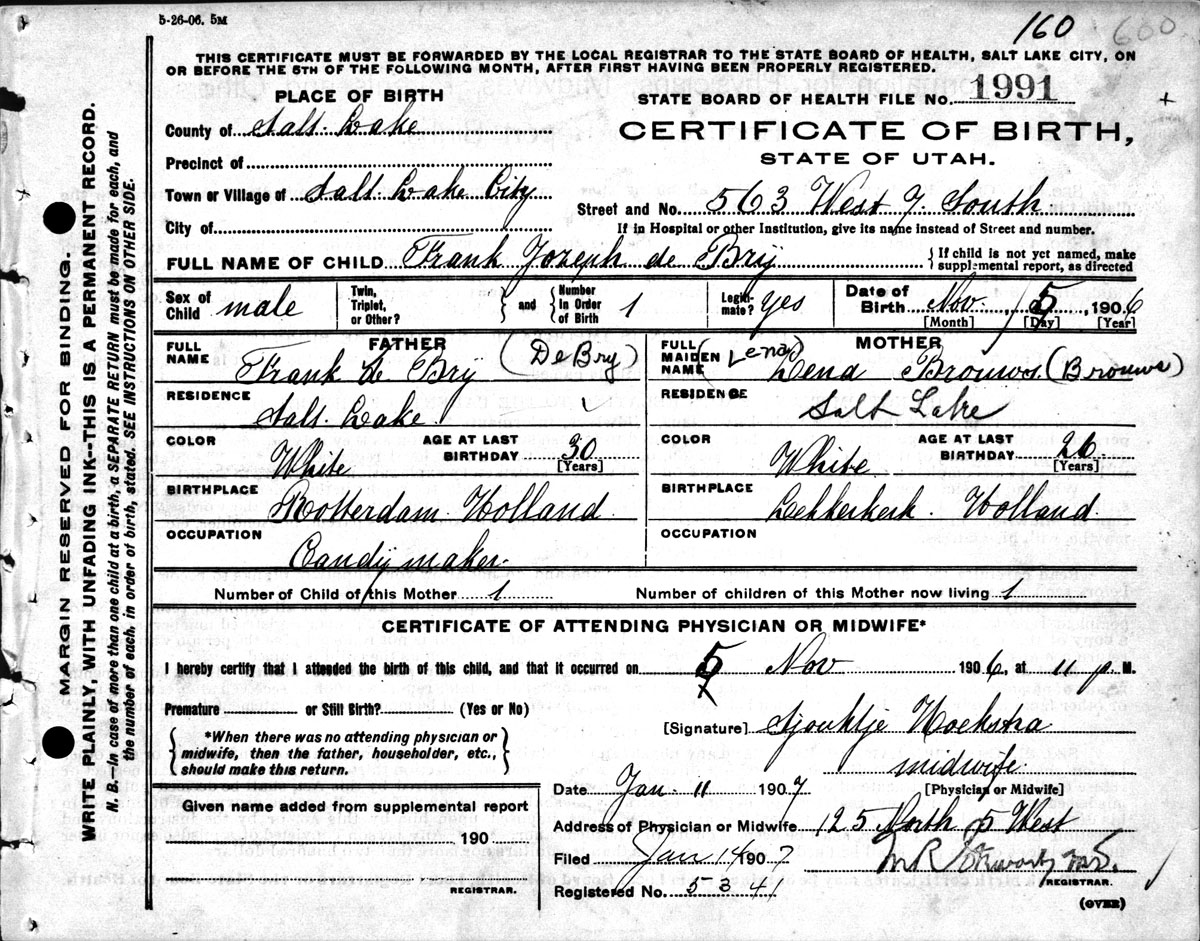 5-26-06. 5M
160 600
THIS CERTIFICATE MUST BE FORWARDED BY THE LOCAL REGISTRAR TO THE STATE BOARD OF HEALTH, SALT LAKE CITY, ON
OR BEFORE THE 5TH OF THE FOLLOWING MONTH, AFTER FIRST HAVING BEEN PROPERLY REGISTERED.
MARGIN RESERVED FOR BINDING.
WRITE PLAINLY, WITH UNFADING INK--THIS IS A PERMANENT RECORD.
N. B.—In case of more than one child at a birth, a SEPARATE RETURN must be made for each, and
the number of each, in order of birth, stated. SEE INSTRUCTIONS ON OTHER SIDE.
PLACE OF BIRTH
County of Salt Lake
Precinct of
Town or Village of Salt Lake City
City of
STATE BOARD OF HEALTH FILE NO. 1991
CERTIFICATE OF BIRTH,
STATE OF UTAH.
Street and No. 563 West 7. South
If in Hospital or other Institution, give its name instead of Street and number.
FULL NAME OF CHILD Frank Jozeph de Brij { If child is not yet named, make
supplemental report, as directed
Sex of Child male Twin, Triplet, or Other? } and { Number In Order of Birth 1 Legiti-mate? yes Date of Birth Nov. 5, 1906
[Month] [Day] [Year]
FATHER
FULL NAME Frank de Brij (DeBry)
RESIDENCE Salt Lake
COLOR White AGE AT LAST BIRTHDAY 30 [Years]
BIRTHPLACE Rotterdam Holland
OCCUPATION Candij maker
MOTHER
FULL MAIDEN NAME (Lena) Lena Brouws. (Brouws)
RESIDENCE Salt Lake
COLOR White AGE AT LAST BIRTHDAY 26 [Years]
BIRTHPLACE Lekkerkerk Holland
OCCUPATION
Number of Child of this Mother 1 Number of children of this Mother now living 1
CERTIFICATE OF ATTENDING PHYSICIAN OR MIDWIFE*
I hereby certify that I attended the birth of this child, and that it occurred on 5 Nov 1906, at 11 p. M.
Premature or Still Birth? (Yes or No)
*When there was no attending physician or
midwife, then the father, householder, etc.,
should make this return.
[Signature] Sjouktje Hoekstra
midwife
[Physician or Midwife]
Date Jan. 11 1907
Address of Physician or Midwife 125 North 5 West
Filed Jan 14 1907
M R Stewart
REGISTRAR.
Registered No. 5341
(OVER)
Given name added from supplemental report
190
REGISTRAR.